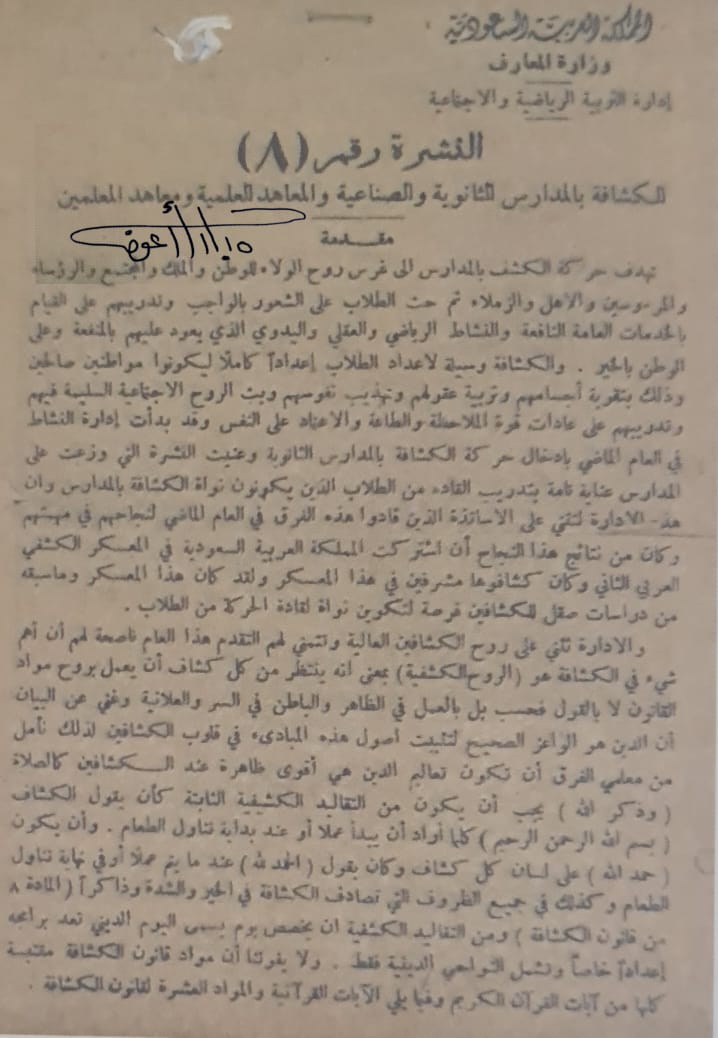 المملكة العربية السعودية
وزارة المعارف
إدارة التربية الرياضية والاجتماعية
النشرة رقم (٨)
للكشافة بالمدارس الثانوية والصناعية والمعاهد العلمية ومعاهد المعلمين
مقدمة
تهدف حركة الكشف بالمدارس الى غرس روح الولاء للوطن والملك والمجتمع والرؤساء
والمرءوسين والاهل والزملاء ثم حث الطلاب على الشعور بالواجب وتدريبهم على القيام
بالخدمات العامة النافعة والنشاط الرياضي والعقلي واليدوي الذي يعود عليهم بالمنفعة وعلى
الوطن بالخير . والكشافة وسيلة لاعداد الطلاب إعداداً كاملا ليكونوا مواطنين صالحين
وذلك بتقوية أجسامهم وتربية عقولهم وتهذيب نفوسهم وبث الروح الاجتماعية السليمة فيهم
وتدريبهم على عادات قوة الملاحظة والطاعة والاعتماد على النفس وقد بدأت إدارة النشاط
في العام الماضي بإدخال حركة الكشافة بالمدارس الثانوية وعنيت النشرة التي وزعت على
المدارس عناية تامة بتدريب القاده من الطلاب الذين يكونون نواة الكشافة بالمدارس وان
هذه الادارة لتثني على الاساتذة الذين قادوا هذه الفرق في العام الماضي لنجاحهم في مهمتهم
وكان من نتائج هذا النجاح أن اشتركت المملكة العربية السعودية في المعسكر الكشفي
العربي الثاني وكان كشافوها مشرفين في هذا المعسكر ولقد كان هذا المعسكر وماسبقه
من دراسات صقل للكشافين فرصة لتكوين نواة لقادة الحركة من الطلاب .
والادارة تثني على روح الكشافين العالية وتتمنى لهم التقدم هذا العام ناصحة لهم أن أهم
شيء في الكشافة هو (الروح الكشفية) بمعنى انه ينتظر من كل كشاف أن يعمل بروح مواد
القانون لا بالقول فحسب بل بالعمل في الظاهر والباطن في السر والعلانية وغني عن البيان
أن الدين هو الوازع الصحيح لتثبيت أصول هذه المبادىء في قلوب الكشافين لذلك نأمل
من معلمي الفرق أن تكون تعاليم الدين هي أقوى ظاهرة عند الكشافين كالصلاة
( وذكر الله ) يجب أن يكون من التقاليد الكشفية الثابتة كأن يقول الكشاف
( بسم الله الرحمن الرحيم ) كلما أراد أن يبدأ عملا أو عند بداية تناول الطعام . وأن يكون
( حمد الله ) على لسان كل كشاف وكان يقول ( الحمد لله ) عند ما يتم عملا أو في نهاية تناول
الطعام وكذلك في جميع الظروف التي تصادف الكشافة في الخير والشدة وذاكراً ( المادة ٨
من قانون الكشافة ) ومن التقاليد الكشفية ان يخصص يوم يسمى اليوم الديني تعد برامجه
إعداداً خاصاً وتشمل النواحي الدينية فقط . ولا يفوتنا أن مواد قانون الكشافة مقتبسة
كلها من آيات القرآن الكريم وفيما يلي الآيات القرآنية والمواد العشرة لقانون الكشافة .